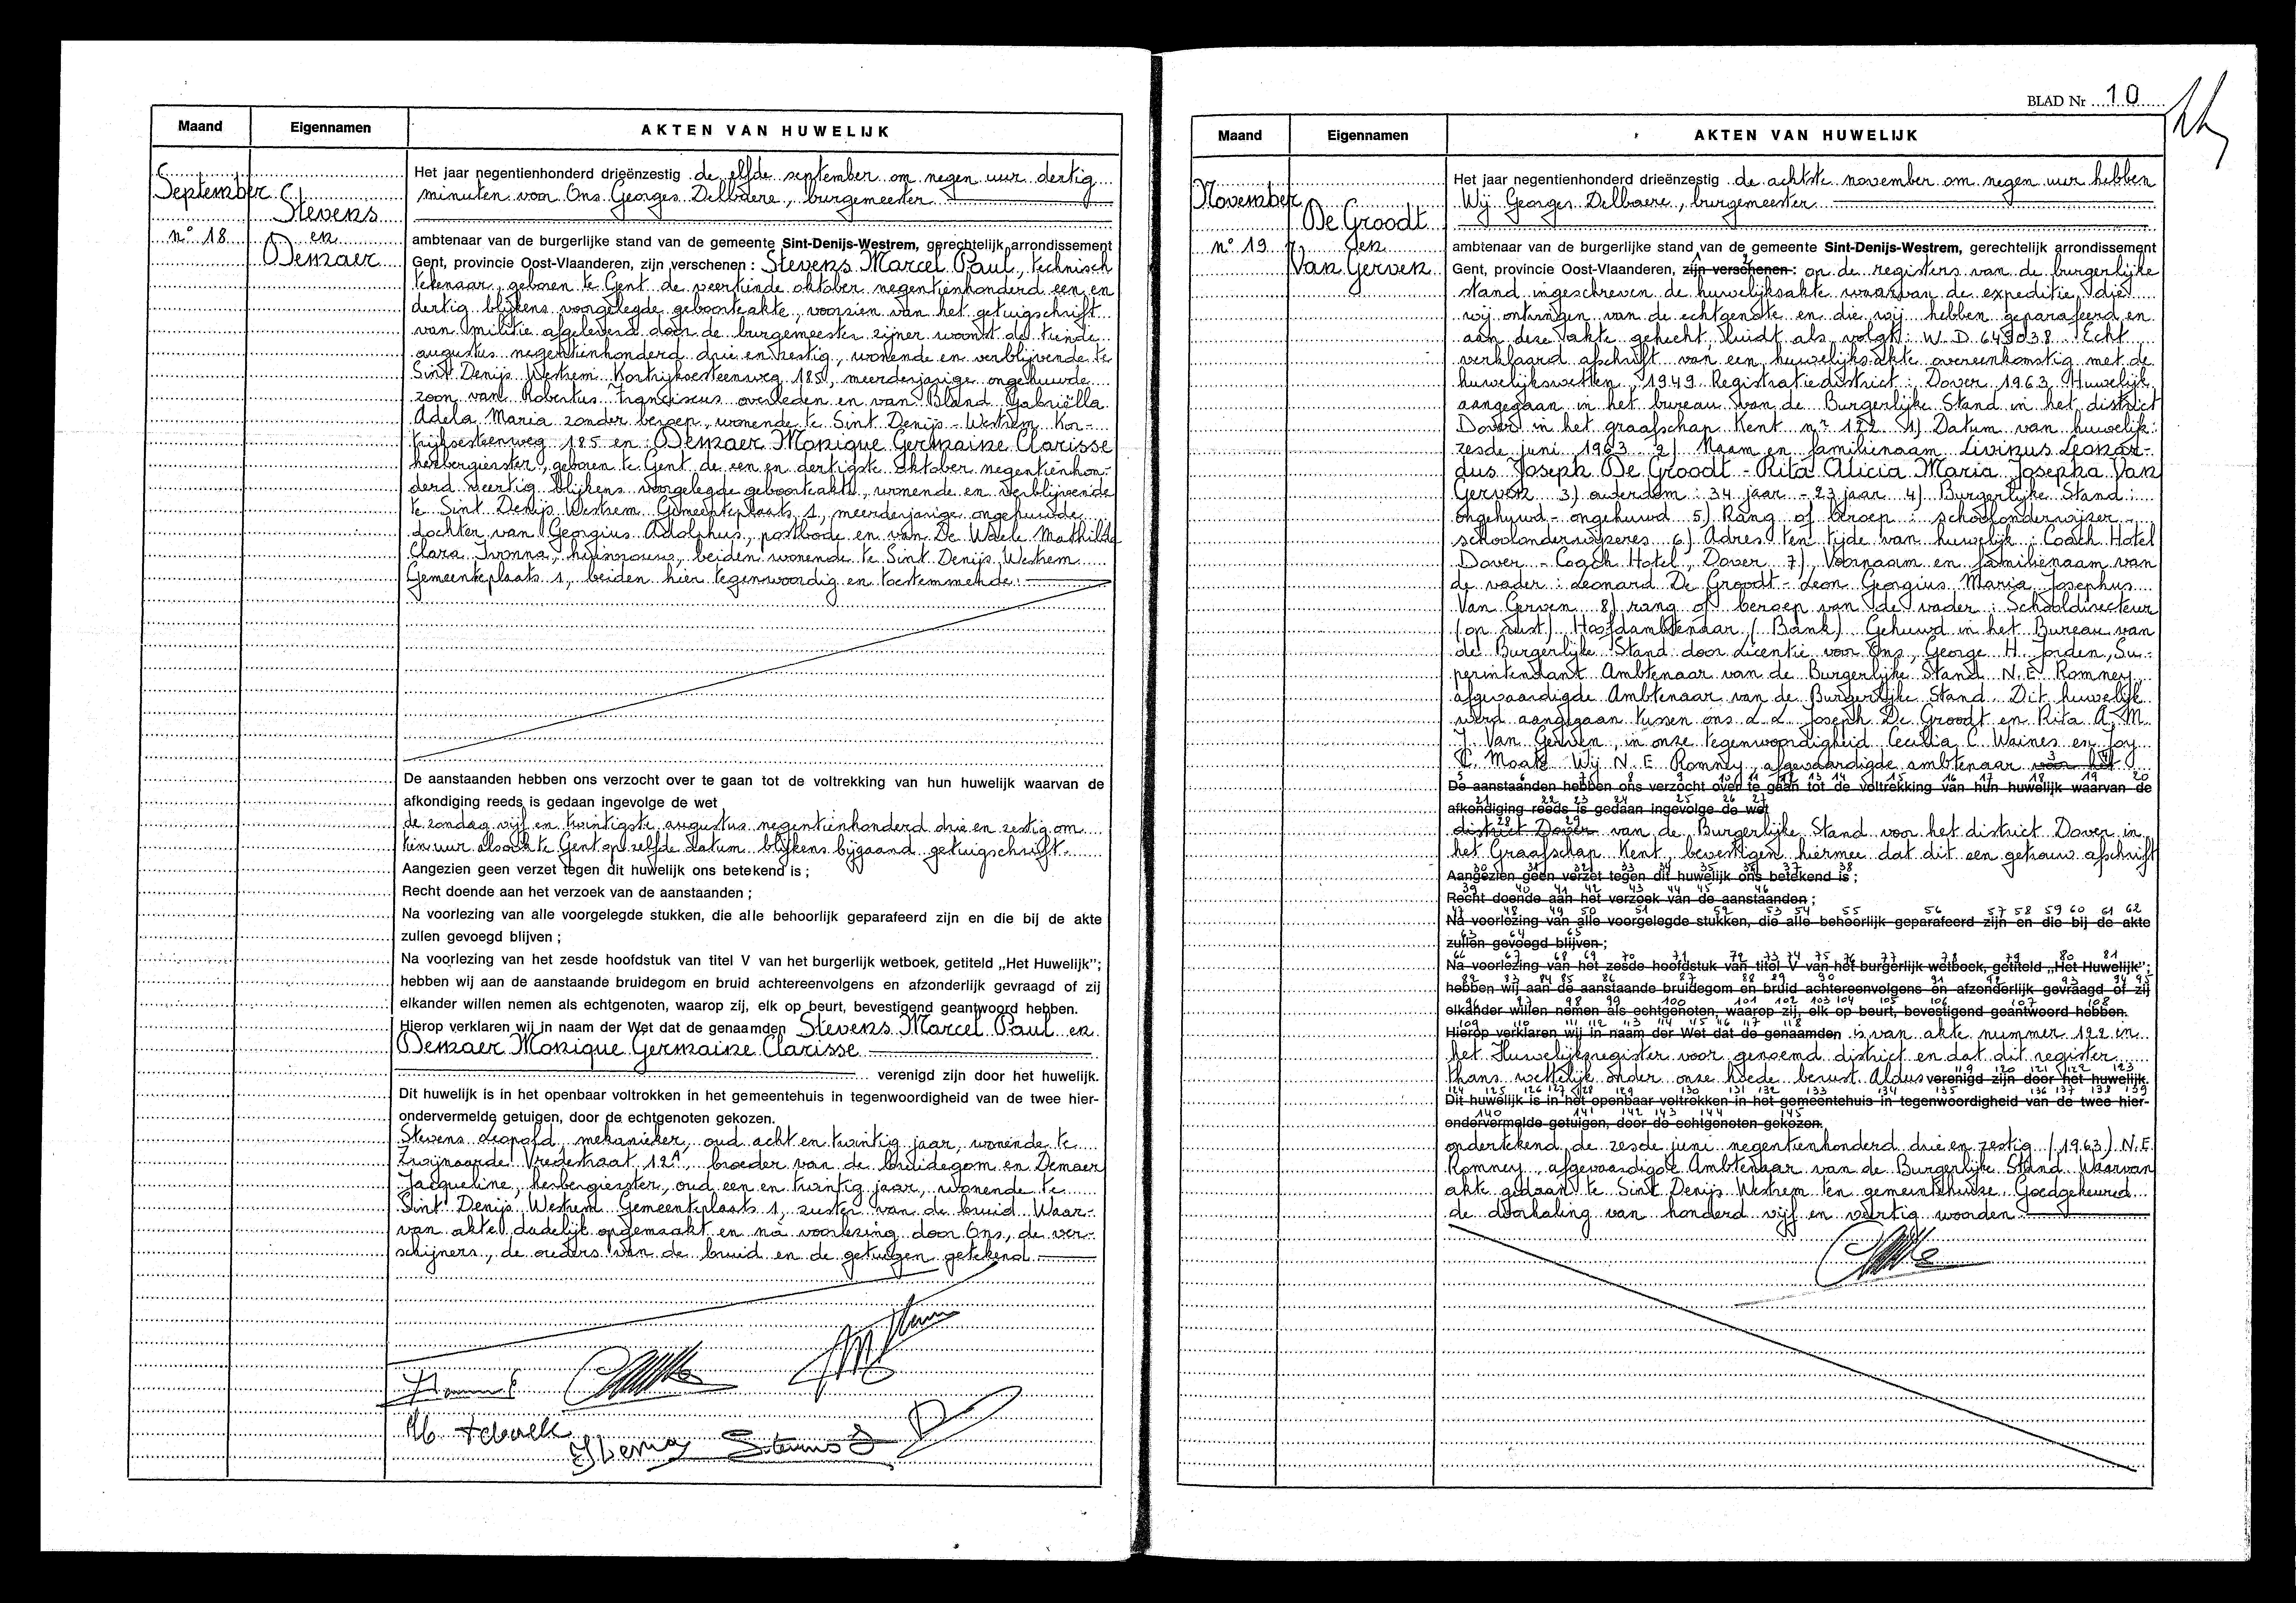 Maand
Eigennamen
AKTEN VAN HUWELIJK
September
Stevens
n° 18
en
Demaer
Het jaar negentienhonderd drieënzestig de elfde september om negen uur dertig
minuten voor Ons Georges Delbaere, burgemeester
ambtenaar van de burgerlijke stand van de gemeente Sint-Denijs-Westrem, gerechtelijk arrondissement
Gent, provincie Oost-Vlaanderen, zijn verschenen : Stevens Marcel Paul, technisch
tekenaar, geboren te Gent de veertiende oktober negentienhonderd een en
dertig blijkens voorgelegde geboorteakte, voorzien van het getuigschrift
van militie afgeleverd door de burgemeester zijner woonst de tiende
augustus negentienhonderd drie en zestig, wonende en verblijvende te
Sint Denijs Westrem Kortrijksesteenweg 185, meerderjarige ongehuwde
zoon van Robertus Franciscus overleden en van Bland Gabriëlla
Adela Maria zonder beroep, wonende te Sint Denijs-Westrem Kor-
trijksesteenweg 185 en : Demaer Monique Germaine Clarisse
herbergierster, geboren te Gent de een en dertigste oktober negentienhon-
derd veertig blijkens voorgelegde geboorteakte, wonende en verblijvende
te Sint Denijs Westrem Gemeenteplaats 1, meerderjarige ongehuwde
dochter van Georgius Adolphus, postbode en van De Waele Mathilda
Clara Ivonna, huisvrouw, beiden wonende te Sint Denijs Westrem
Gemeenteplaats 1, beiden hier tegenwoordig en toestemmende.
De aanstaanden hebben ons verzocht over te gaan tot de voltrekking van hun huwelijk waarvan de
afkondiging reeds is gedaan ingevolge de wet
de zondag vijf en twintigste augustus negentienhonderd drie en zestig om
tien uur alsook te Gent op zelfde datum blijkens bijgaand getuigschrift.
Aangezien geen verzet tegen dit huwelijk ons betekend is ;
Recht doende aan het verzoek van de aanstaanden ;
Na voorlezing van alle voorgelegde stukken, die alle behoorlijk geparafeerd zijn en die bij de akte
zullen gevoegd blijven ;
Na voorlezing van het zesde hoofdstuk van titel V van het burgerlijk wetboek, getiteld „Het Huwelijk";
hebben wij aan de aanstaande bruidegom en bruid achtereenvolgens en afzonderlijk gevraagd of zij
elkander willen nemen als echtgenoten, waarop zij, elk op beurt, bevestigend geantwoord hebben.
Hierop verklaren wij in naam der Wet dat de genaamden Stevens Marcel Paul en
Demaer Monique Germaine Clarisse
verenigd zijn door het huwelijk.
Dit huwelijk is in het openbaar voltrokken in het gemeentehuis in tegenwoordigheid van de twee hier-
ondervermelde getuigen, door de echtgenoten gekozen.
Stevens Leopold, mekanieker, oud acht en twintig jaar, wonende te
Zwijnaarde Vredestraat 12A, broeder van de bruidegom en Demaer
Jacqueline, herbergierster, oud een en twintig jaar, wonende te
Sint Denijs Westrem Gemeenteplaats 1, zuster van de bruid. Waar-
van akte dadelijk opgemaakt en na voorlezing door Ons, de ver-
schijners, de ouders van de bruid en de getuigen getekend.
BLAD Nr 10
Maand
Eigennamen
AKTEN VAN HUWELIJK
November
De Groodt
n° 19
en
Van Gerven
Het jaar negentienhonderd drieënzestig de achtste november om negen uur hebben
Wij Georges Delbaere, burgemeester
ambtenaar van de burgerlijke stand van de gemeente Sint-Denijs-Westrem, gerechtelijk arrondissement
Gent, provincie Oost-Vlaanderen, zijn verschenen : op de registers van de burgerlijke
stand ingeschreven de huwelijksakte waarvan de expeditie die
wij ontvingen van de echtgenote en die wij hebben geparafeerd en
aan deze akte gehecht, luidt als volgt : W.D 649038. Echt
verklaard afschrift van een huwelijksakte overeenkomstig met de
huwelijkswetten, 1949 Registratiedistrict : Dover 1963 Huwelijk
aangegaan in het bureau van de Burgerlijke Stand in het district
Dover in het graafschap Kent nr 122 1) Datum van huwelijk :
zesde juni 1963 2) Naam en familienaam Livinus Leonar-
dus Joseph De Groodt - Rita Alicia Maria Josepha Van
Gerven 3) ouderdom : 34 jaar - 23 jaar 4) Burgerlijke Stand :
ongehuwd - ongehuwd 5) Rang of beroep : schoolonderwijzer -
schoolonderwijzeres 6) Adres ten tijde van huwelijk : Coach Hotel
Dover - Coach Hotel, Dover 7) Voornaam en familienaam van
de vader : Leonard De Groodt - Leon Georgius Maria Josephus
Van Gerven 8) rang of beroep van de vader : Schooldirecteur
(op rust) Hoofdambtenaar (Bank) Gehuwd in het Bureau van
de Burgerlijke Stand door Licentie voor Ons, George H. Jorden, Su-
perintendant Ambtenaar van de Burgerlijke Stand N.E. Romney
afgevaardigde Ambtenaar van de Burgerlijke Stand. Dit huwelijk
werd aangegaan tussen ons L.L. Joseph De Groodt en Rita A.M.
J. Van Gerven, in onze tegenwoordigheid Cecilia C. Waines en Joy
C. Moate Wij N.E Romney, afgevaardigde ambtenaar voor het
De aanstaanden hebben ons verzocht over te gaan tot de voltrekking van hun huwelijk waarvan de
afkondiging reeds is gedaan ingevolge de wet
district Dover van de Burgerlijke Stand voor het district Dover in
het Graafschap Kent, bevestigen hiermee dat dit een getrouw afschrift
Aangezien geen verzet tegen dit huwelijk ons betekend is ;
Recht doende aan het verzoek van de aanstaanden ;
Na voorlezing van alle voorgelegde stukken, die alle behoorlijk geparafeerd zijn en die bij de akte
zullen gevoegd blijven ;
Na voorlezing van het zesde hoofdstuk van titel V van het burgerlijk wetboek, getiteld „Het Huwelijk";
hebben wij aan de aanstaande bruidegom en bruid achtereenvolgens en afzonderlijk gevraagd of zij
elkander willen nemen als echtgenoten, waarop zij, elk op beurt, bevestigend geantwoord hebben.
Hierop verklaren wij in naam der Wet dat de genaamden is van akte nummer 122 in
het Huwelijksregister voor genoemd district en dat dit register
thans wettelijk onder onze hoede berust. Aldus verenigd zijn door het huwelijk.
Dit huwelijk is in het openbaar voltrokken in het gemeentehuis in tegenwoordigheid van de twee hier-
ondervermelde getuigen, door de echtgenoten gekozen.
ondertekend de zesde juni negentienhonderd drie en zestig (1963) N.E
Romney, afgevaardigde Ambtenaar van de Burgerlijke Stand. Waarvan
akte gedaan te Sint Denijs Westrem ten gemeentehuize Goedgekeurd
de doorhaling van honderd vijf en veertig woorden